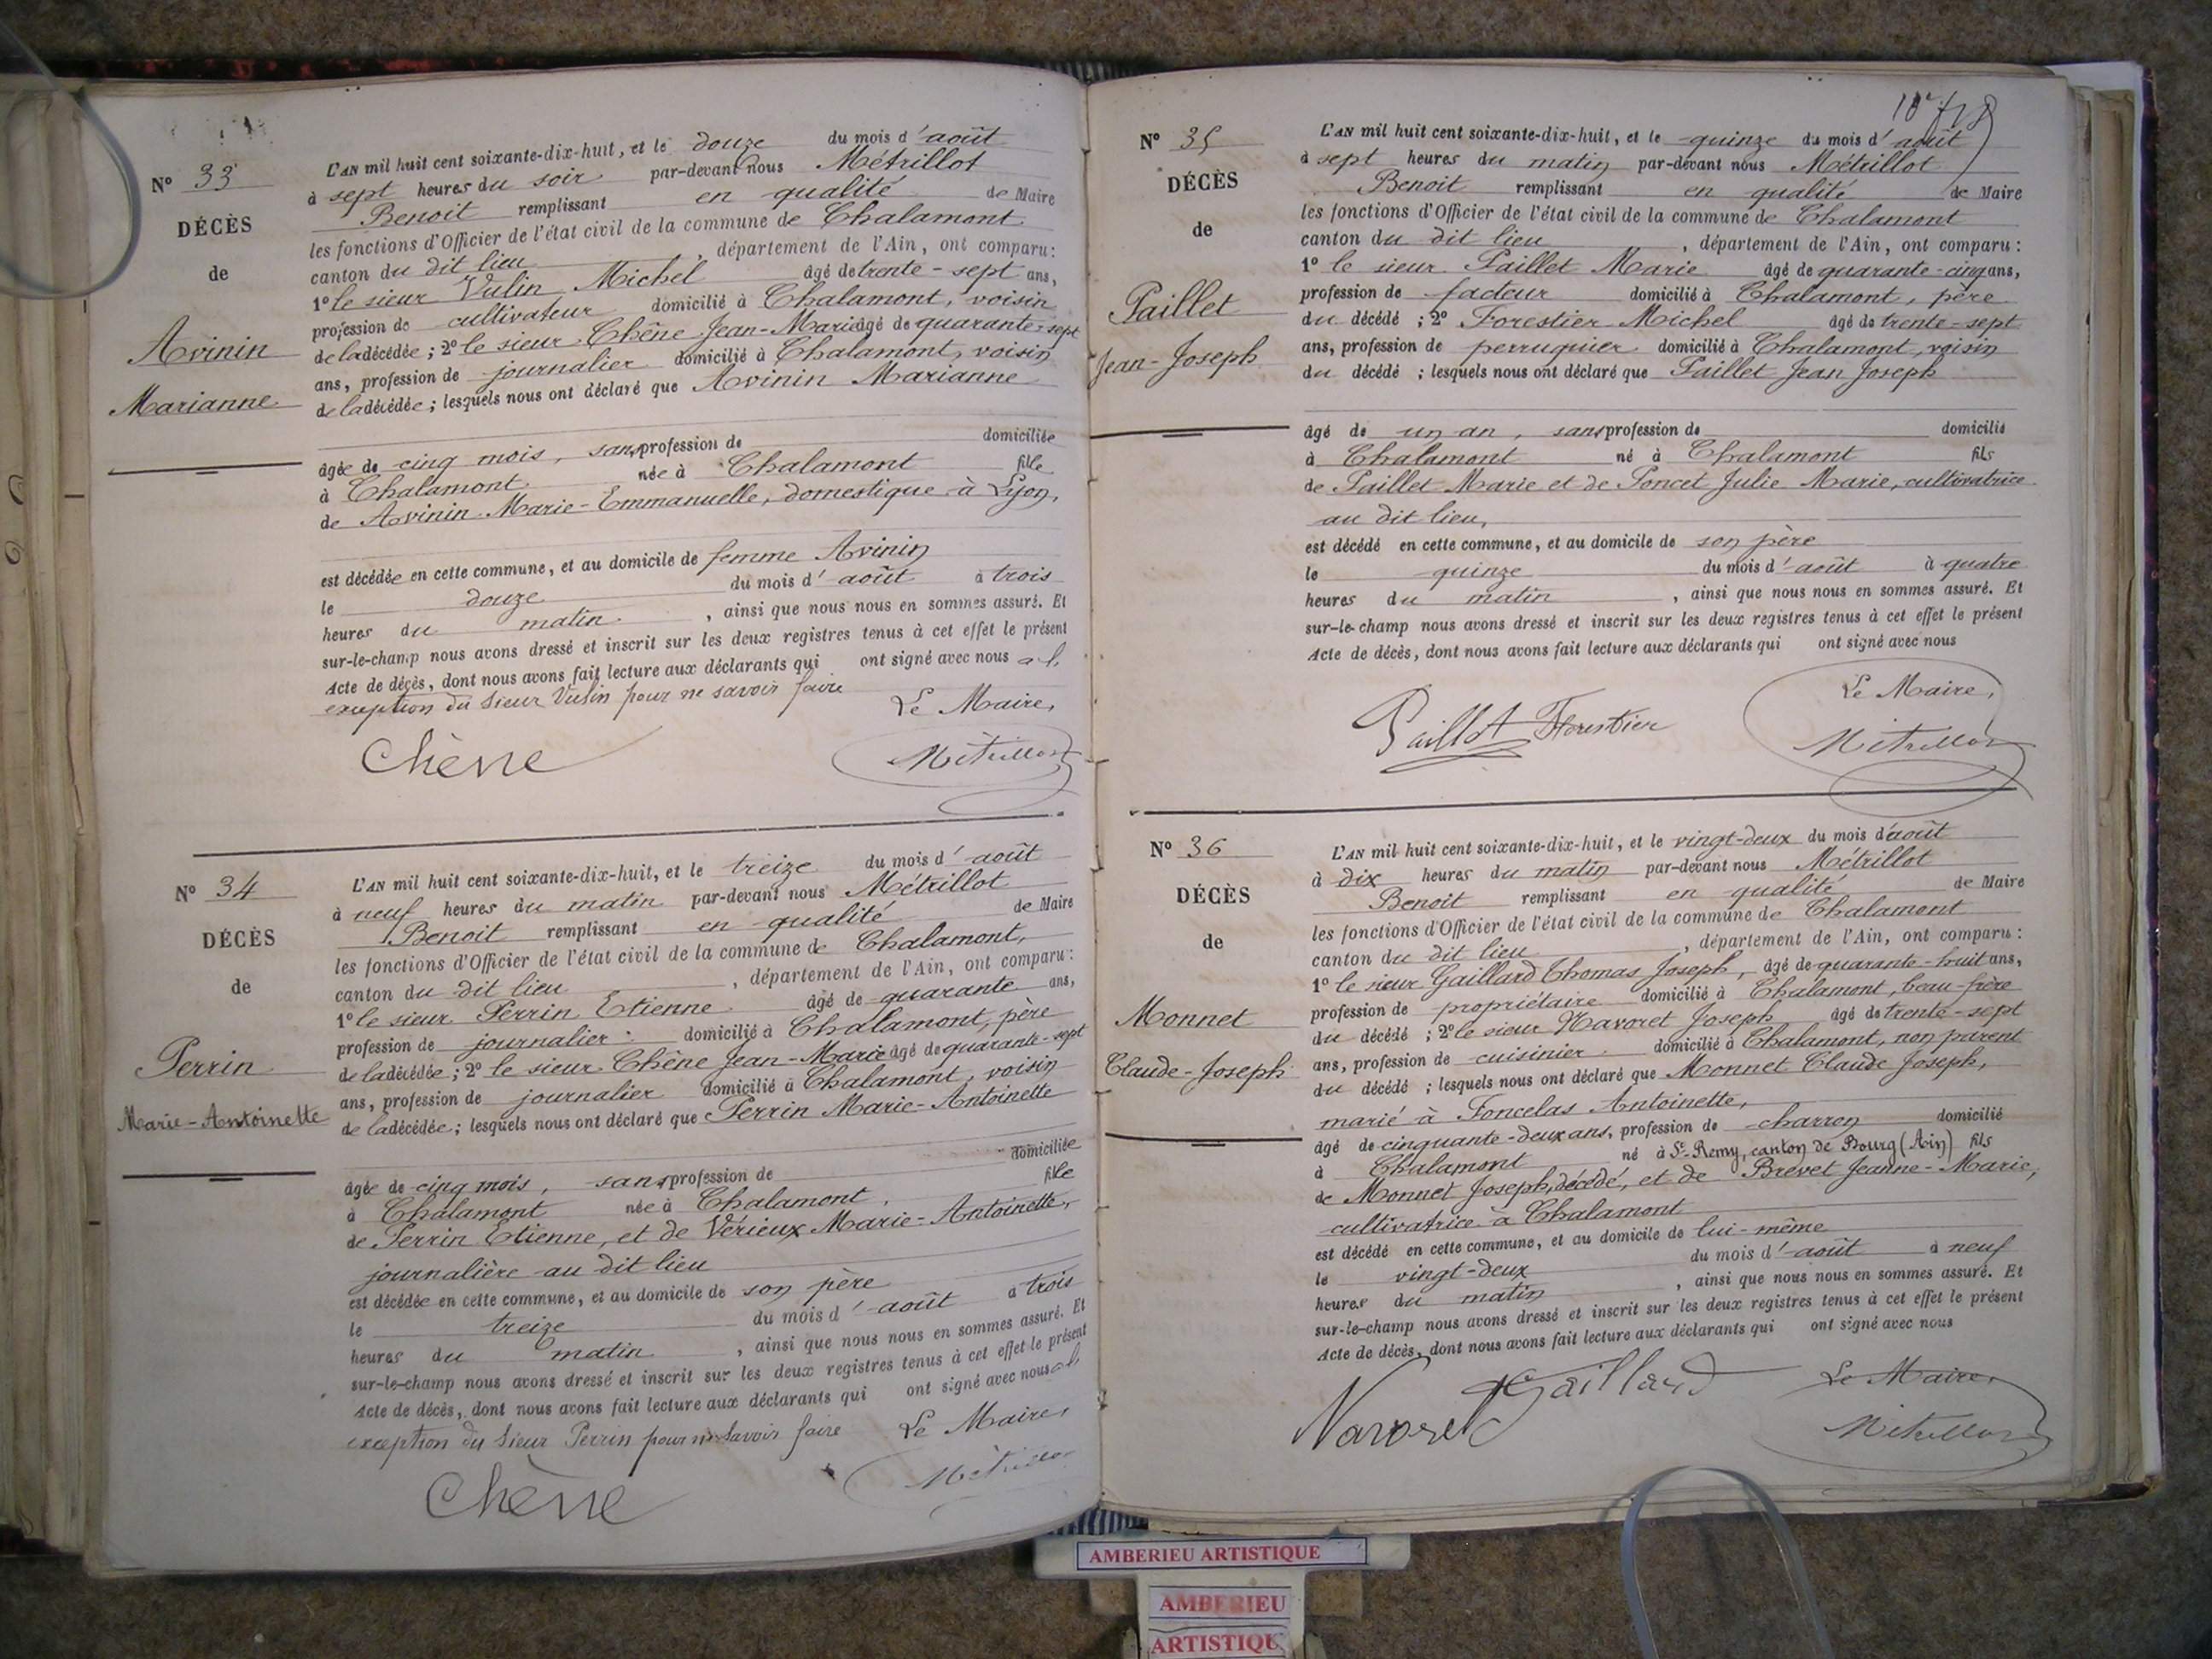 N° 33
DÉCÈS
de
Avinin
Marianne
L'AN mil huit cent soixante-dix-huit, et le douze du mois d'août
à sept heures du soir par-devant nous Métrillot
Benoit remplissant en qualité de Maire
les fonctions d'Officier de l'état civil de la commune de Chalamont
canton du dit lieu, département de l'Ain, ont comparu:
1° le sieur Vulin Michel âgé de trente-sept ans,
profession de cultivateur domicilié à Chalamont, voisin
de la décédée; 2° le sieur Chêne Jean-Marie âgé de quarante-sept
ans, profession de journalier domicilié à Chalamont, voisin
de la décédée; lesquels nous ont déclaré que Avinin Marianne
âgée de cinq mois, sans profession de domiciliée
à Chalamont née à Chalamont fille
de Avinin Marie-Emmanuelle, domestique à Lyon,
est décédée en cette commune, et au domicile de femme Avinin
le douze du mois d'août à trois
heures du matin, ainsi que nous nous en sommes assuré. Et
sur-le-champ nous avons dressé et inscrit sur les deux registres tenus à cet effet le présent
Acte de décès, dont nous avons fait lecture aux déclarants qui ont signé avec nous a l'
exception du sieur Vulin pour ne savoir faire
Le Maire,
Chêne Métrillot
N° 34
DÉCÈS
de
Perrin
Marie-Antoinette
L'AN mil huit cent soixante-dix-huit, et le treize du mois d'août
à neuf heures du matin par-devant nous Métrillot
Benoit remplissant en qualité de Maire
les fonctions d'Officier de l'état civil de la commune de Chalamont,
canton du dit lieu, département de l'Ain, ont comparu:
1° le sieur Perrin Etienne âgé de quarante ans,
profession de journalier domicilié à Chalamont, père
de la décédée; 2° le sieur Chêne Jean-Marie âgé de quarante-sept
ans, profession de journalier domicilié à Chalamont, voisin
de la décédée; lesquels nous ont déclaré que Perrin Marie-Antoinette
âgée de cinq mois, sans profession de domiciliée
à Chalamont née à Chalamont, fille
de Perrin Etienne, et de Vérieux Marie-Antoinette,
journalière au dit lieu
est décédée en cette commune, et au domicile de son père
le treize du mois d'août à trois
heures du matin, ainsi que nous nous en sommes assuré. Et
sur-le-champ nous avons dressé et inscrit sur les deux registres tenus à cet effet le présent
Acte de décès, dont nous avons fait lecture aux déclarants qui ont signé avec nous a l'
exception du sieur Perrin pour ne savoir faire
Le Maire,
Chêne Métrillot
N° 35
DÉCÈS
de
Paillet
Jean-Joseph
L'AN mil huit cent soixante-dix-huit, et le quinze du mois d'août
à sept heures du matin par-devant nous Métrillot
Benoit remplissant en qualité de Maire
les fonctions d'Officier de l'état civil de la commune de Chalamont
canton du dit lieu, département de l'Ain, ont comparu:
1° le sieur Paillet Marie âgé de quarante-cinq ans,
profession de facteur domicilié à Chalamont, père
du décédé; 2° Forestier Michel âgé de trente-sept
ans, profession de perruquier domicilié à Chalamont, voisin
du décédé; lesquels nous ont déclaré que Paillet Jean Joseph
âgé de un an, sans profession de domicilié
à Chalamont né à Chalamont fils
de Paillet Marie et de Poncet Julie Marie, cultivatrice
au dit lieu,
est décédé en cette commune, et au domicile de son père
le quinze du mois d'août à quatre
heures du matin, ainsi que nous nous en sommes assuré. Et
sur-le-champ nous avons dressé et inscrit sur les deux registres tenus à cet effet le présent
Acte de décès, dont nous avons fait lecture aux déclarants qui ont signé avec nous
Le Maire,
Paillet Forestier Métrillot
N° 36
DÉCÈS
de
Monnet
Claude-Joseph
L'AN mil huit cent soixante-dix-huit, et le vingt-deux du mois d'août
à dix heures du matin par-devant nous Métrillot
Benoit remplissant en qualité de Maire
les fonctions d'Officier de l'état civil de la commune de Chalamont
canton du dit lieu, département de l'Ain, ont comparu:
1° le sieur Gaillard Thomas Joseph, âgé de quarante-huit ans,
profession de propriétaire domicilié à Chalamont, beau-frère
du décédé; 2° le sieur Navoret Joseph âgé de trente-sept
ans, profession de cuisinier domicilié à Chalamont, non parent
du décédé; lesquels nous ont déclaré que Monnet Claude Joseph,
marié à Foncelas Antoinette,
âgé de cinquante-deux ans, profession de charron domicilié
à Chalamont né à St-Remy, canton de Bourg (Ain) fils
de Monnet Joseph, décédé, et de Brevet Jeanne-Marie,
cultivatrice à Chalamont
est décédé en cette commune, et au domicile de lui-même
le vingt-deux du mois d'août à neuf
heures du matin, ainsi que nous nous en sommes assuré. Et
sur-le-champ nous avons dressé et inscrit sur les deux registres tenus à cet effet le présent
Acte de décès, dont nous avons fait lecture aux déclarants qui ont signé avec nous
Gaillard Le Maire,
Navoret Métrillot
AMBERIEU ARTISTIQUE
AMBERIEU
ARTISTIQUE